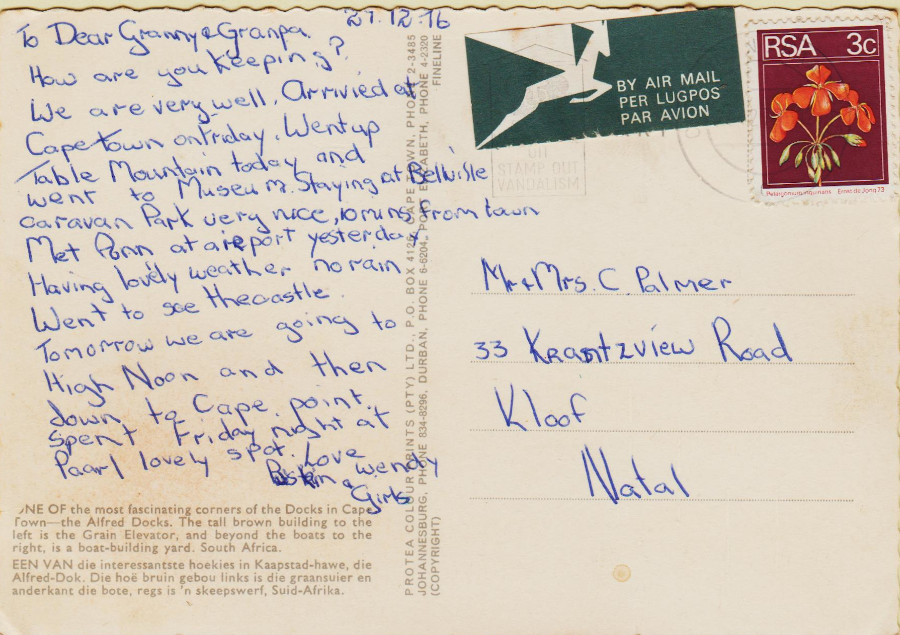 27.12.76
To Dear Granny & Granpa.
How are you keeping?
We are very well. Arrivied at
Cape town on friday. Went up
Table Mountain today and
went to Museum. Staying at Belville
caravan Park very nice, 10 mins from town
Met Ponn at aireport yesterday
Having lovely weather no rain
Went to see the castle.
Tomorrow we are going to
High Noon and then
down to Cape point.
Spent Friday night at
Paarl lovely spot. Love
wendy
& Girls
ONE OF the most fascinating corners of the Docks in Cape
Town—the Alfred Docks. The tall brown building to the
left is the Grain Elevator, and beyond the boats to the
right, is a boat-building yard. South Africa.
EEN VAN die interessantste hoekies in Kaapstad-hawe, die
Alfred-Dok. Die hoë bruin gebou links is die graansuier en
anderkant die bote, regs is 'n skeepswerf, Suid-Afrika.
PROTEA COLOUR PRINTS (PTY) LTD., P.O. BOX 4125, CAPE TOWN, PHONE 2-3485
JOHANNESBURG, PHONE 834-8296, DURBAN, PHONE 6-6204, PORT ELIZABETH, PHONE 4-2320
(COPYRIGHT) FINELINE
BY AIR MAIL
PER LUGPOS
PAR AVION
RSA 3c
Mr & Mrs. C. Palmer
33 Krantzview Road
Kloof
Natal